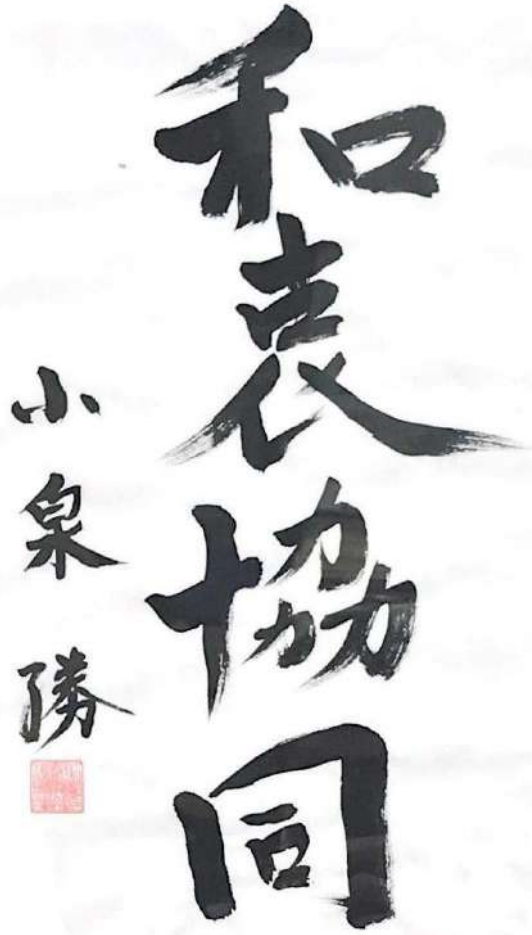 和衷協同
小泉勝